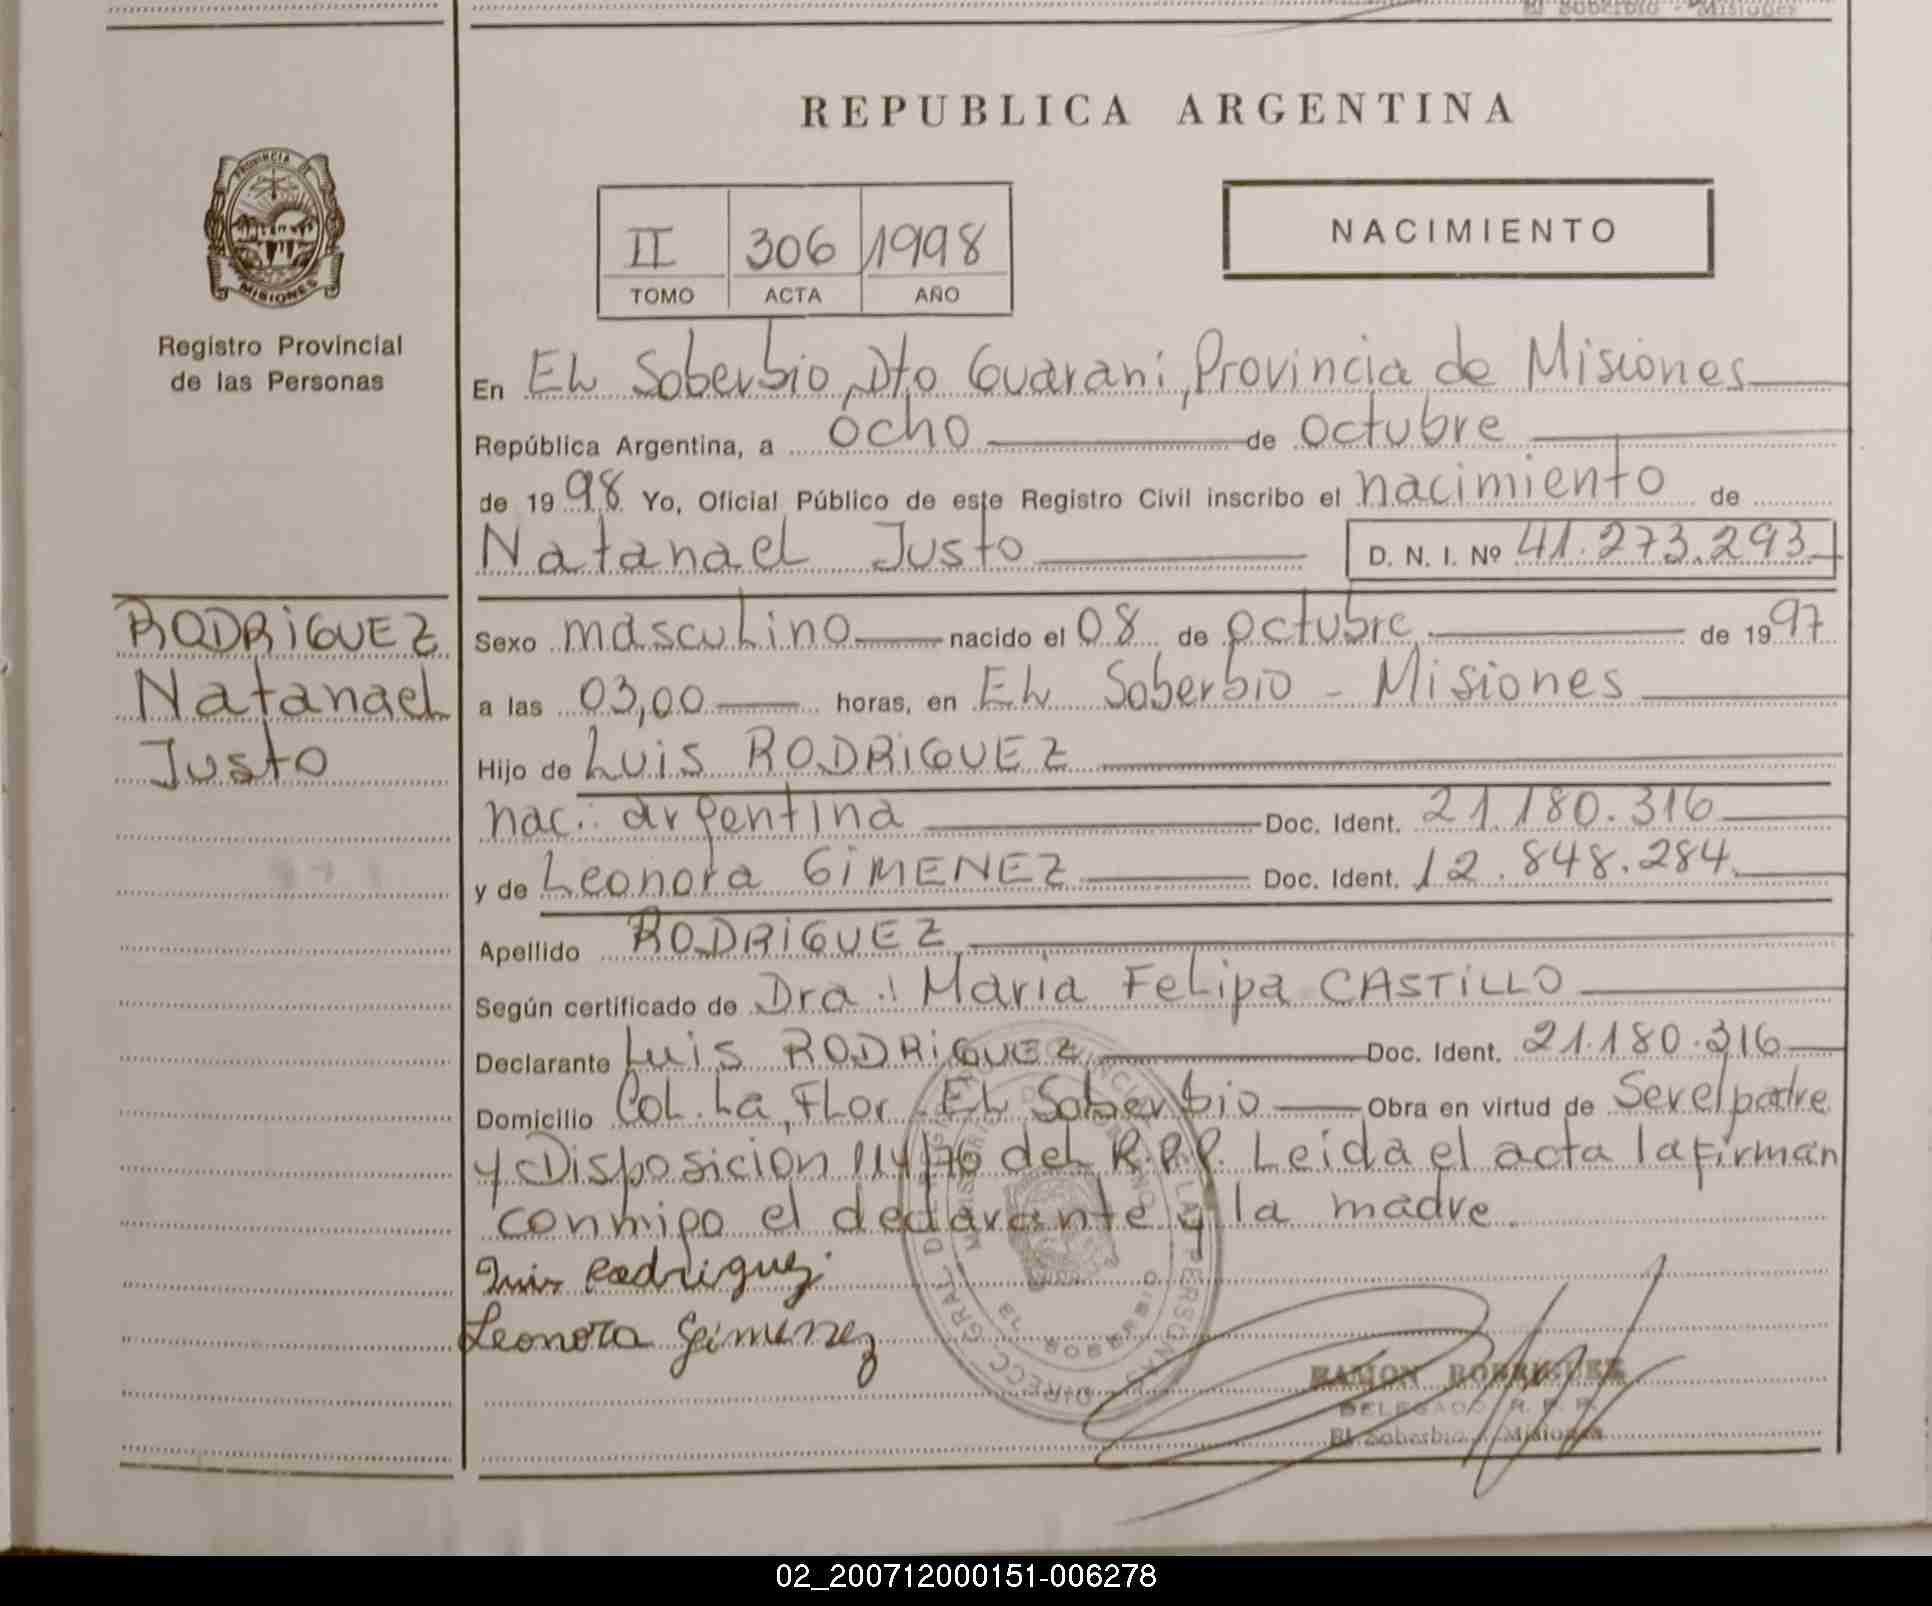 El Soberbio - Misiones
REPUBLICA ARGENTINA
PROVINCIA DE
MISIONES
Registro Provincial
de las Personas
II 306 1998
TOMO ACTA AÑO
NACIMIENTO
En El Soberbio, Dto Guarani, Provincia de Misiones
República Argentina, a ocho de octubre
de 1998 Yo, Oficial Público de este Registro Civil inscribo el nacimiento de
Natanael Justo D. N. I. Nº 41.273.293
RODRiGUEZ
Natanael
Justo
Sexo masculino nacido el 08 de octubre de 1997
a las 03,00 horas, en El Soberbio - Misiones
Hijo de Luis RODRiGUEZ
nac.: argentina Doc. Ident. 21.180.316
y de Leonora GiMENEZ Doc. Ident. 12.848.284
Apellido RODRiGUEZ
Según certificado de Dra.: Maria Felipa CASTiLLO
Declarante Luis RODRiGUEZ Doc. Ident. 21.180.316
Domicilio Col. La Flor El Soberbio Obra en virtud de Ser el padre
y Disposición 114/76 del R.P.P. Leida el acta la firman
conmigo el declarante y la madre.
Luis Rodriguez
Leonora Gimenez
DIRECC. GRAL. DE LAS PERSONAS
EL SOBERBIO
RAMON RODRIGUEZ
DELEGADO R. P. P.
El Soberbio - Misiones
02_200712000151-006278